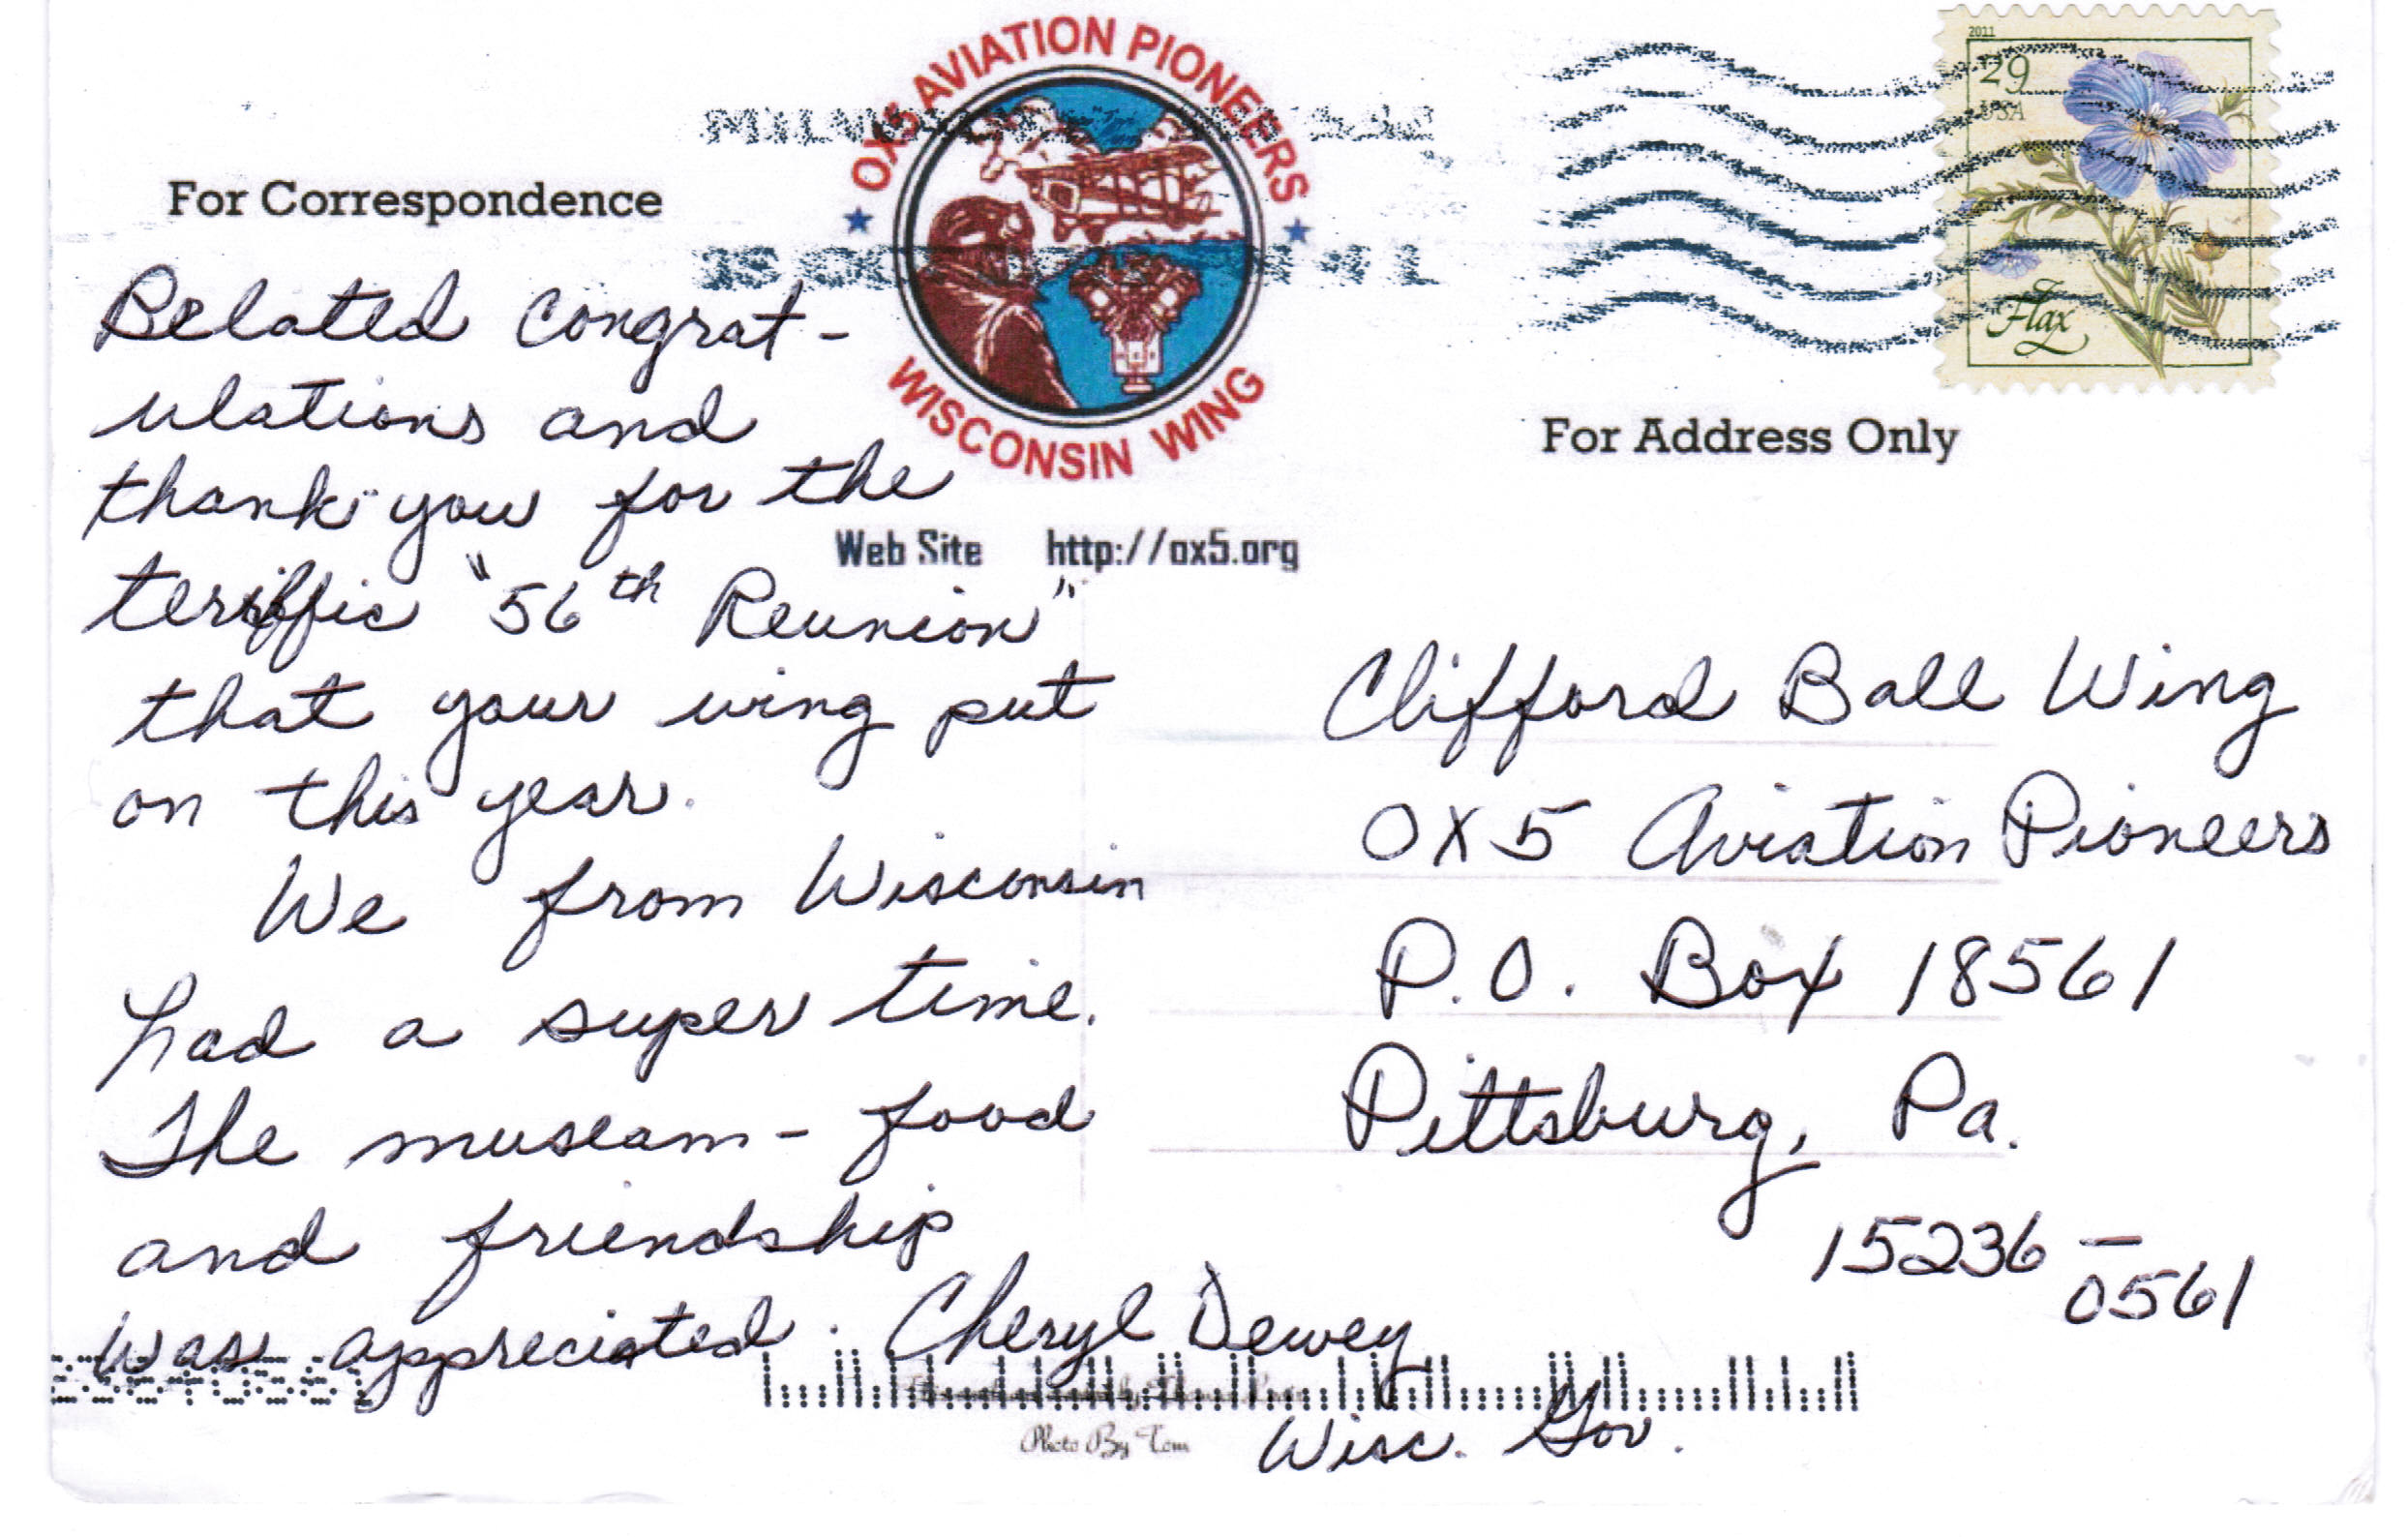 OX5 AVIATION PIONEERS
WISCONSIN WING
2011
29
USA
Flax
For Correspondence
For Address Only
Web Site http://ox5.org
Belated congrat-
ulations and
thank you for the
terriffic "56th Reunion"
that your wing put
on this year.
We from Wisconsin
had a super time.
The museam - food
and friendship
was appreciated. Cheryl Dewey
Wisc. Gov.
Clifford Ball Wing
OX5 Aviation Pioneers
P.O. Box 18561
Pittsburg, Pa.
15236 -
0561
Photo By Tom